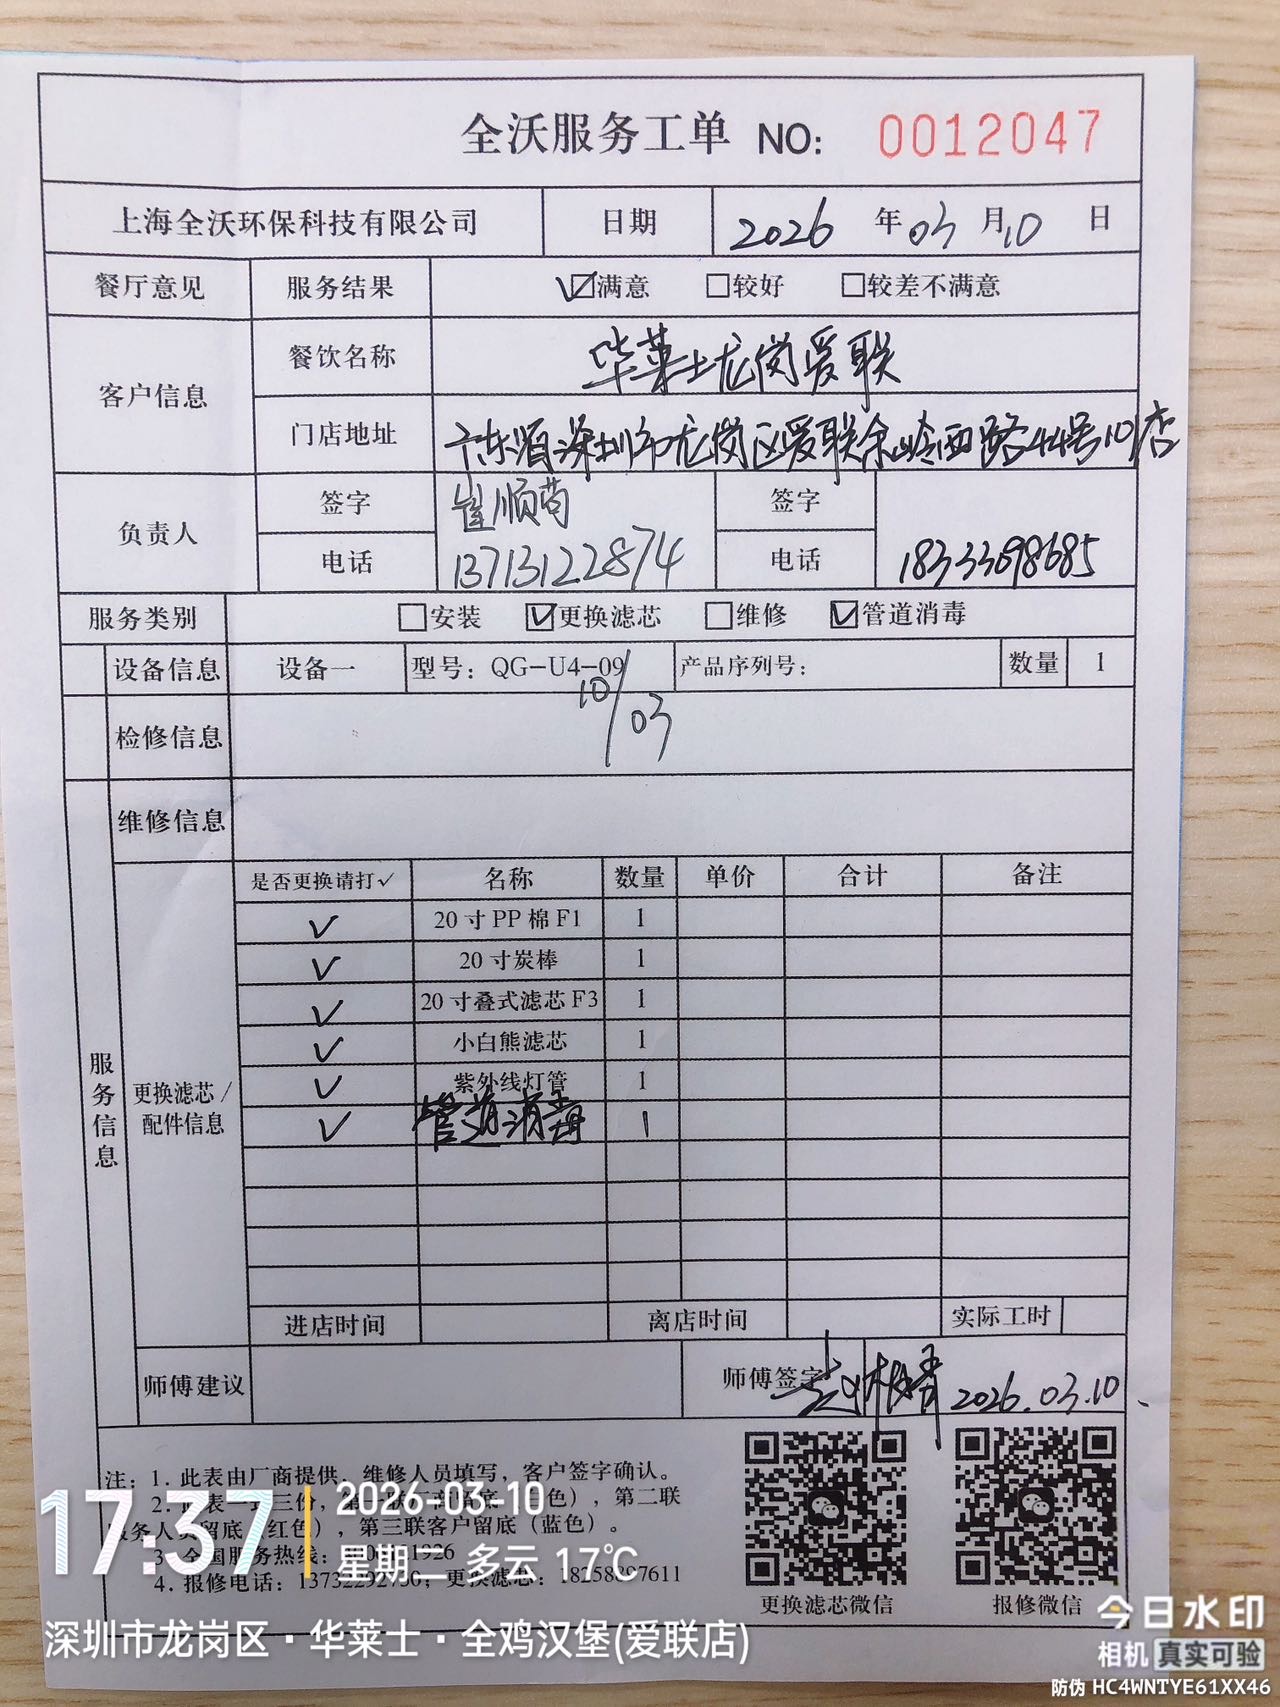 全沃服务工单 NO: 0012047
上海全沃环保科技有限公司 日期 2026 年 03 月 10 日
餐厅意见 服务结果 ☑满意 □较好 □较差不满意
客户信息 餐饮名称 华莱士龙岗爱联
门店地址 广东省深圳市龙岗区爱联余岭西路44号101店
负责人 签字 崔顺 签字
电话 13713122874 电话 18333698685
服务类别 □安装 ☑更换滤芯 □维修 ☑管道消毒
设备信息 设备一 型号: QG-U4-09 产品序列号: 数量 1
10/03
检修信息
维修信息
服务信息 更换滤芯/配件信息
是否更换请打✓ 名称 数量 单价 合计 备注
✓ 20寸PP棉F1 1
✓ 20寸炭棒 1
✓ 20寸叠式滤芯F3 1
✓ 小白熊滤芯 1
✓ 紫外线灯管 1
✓ 管道消毒 1
进店时间 离店时间 实际工时
师傅建议 师傅签字 2026.03.10.
注: 1. 此表由厂商提供, 维修人员填写, 客户签字确认。
2. 此表一式三份, 色), 第二联
服务人员留底 红色), 第三联客户留底 (蓝色)。
3. 全国服务热线: 1926
4. 报修电话: 更换滤芯:
更换滤芯微信 报修微信
17:37 2026-03-10
星期二 多云 17℃
深圳市龙岗区·华莱士·全鸡汉堡(爱联店)
今日水印
相机 真实可验
防伪 HC4WNTYE61XX46